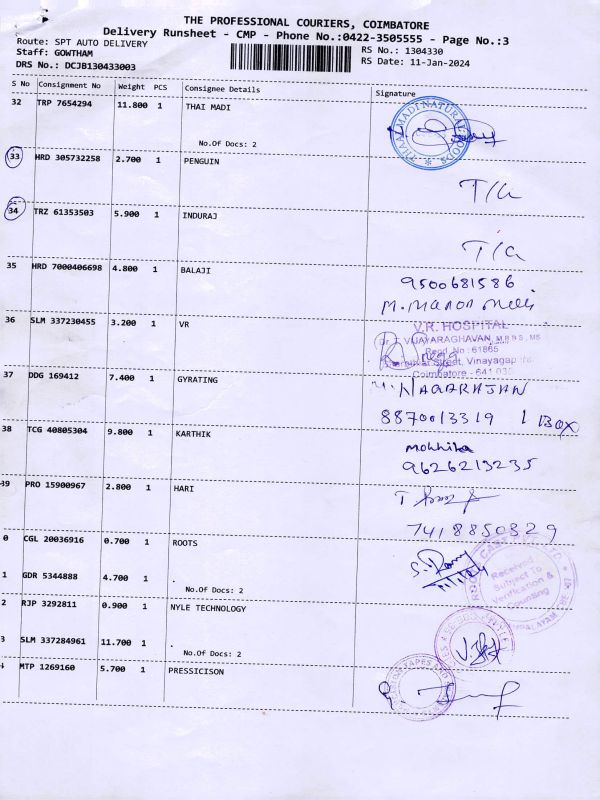 THE PROFESSIONAL COURIERS, COIMBATORE
Delivery Runsheet - CMP - Phone No.:0422-3505555 - Page No.:3
Route: SPT AUTO DELIVERY
RS No.: 1304330
Staff: GOWTHAM
RS Date: 11-Jan-2024
DRS No.: DCJB130433003
S No Consignment No Weight PCS Consignee Details Signature
32 TRP 7654294 11.800 1 THAI MADI
THAALMADI NATURAL FOODS
No.Of Docs: 2
33 HRD 305732258 2.700 1 PENGUIN
T/a
34 TRZ 61353503 5.900 1 INDURAJ
T/a
35 HRD 7000406698 4.800 1 BALAJI
9500681586
36 SLM 337230455 3.200 1 VR
V.R. HOSPITAL
Dr. T. VIJAYARAGHAVAN, M.B.B.S, MS
Regd. No : 61865
Street, Vinayagap
Coimbatore - 641 035
37 DDG 169412 7.400 1 GYRATING
M. NAGARAJAN
8870013319 1 Box
38 TCG 40805304 9.800 1 KARTHIK
9626213235
39 PRO 15900967 2.800 1 HARI
7418850329
0 CGL 20036916 0.700 1 ROOTS
Received
Subject To
Verification &
1 GDR 5344888 4.700 1
No.Of Docs: 2
2 RJP 3292811 0.900 1 NYLE TECHNOLOGY
3 SLM 337284961 11.700 1
No.Of Docs: 2
4 MTP 1269160 5.700 1 PRESSICISON